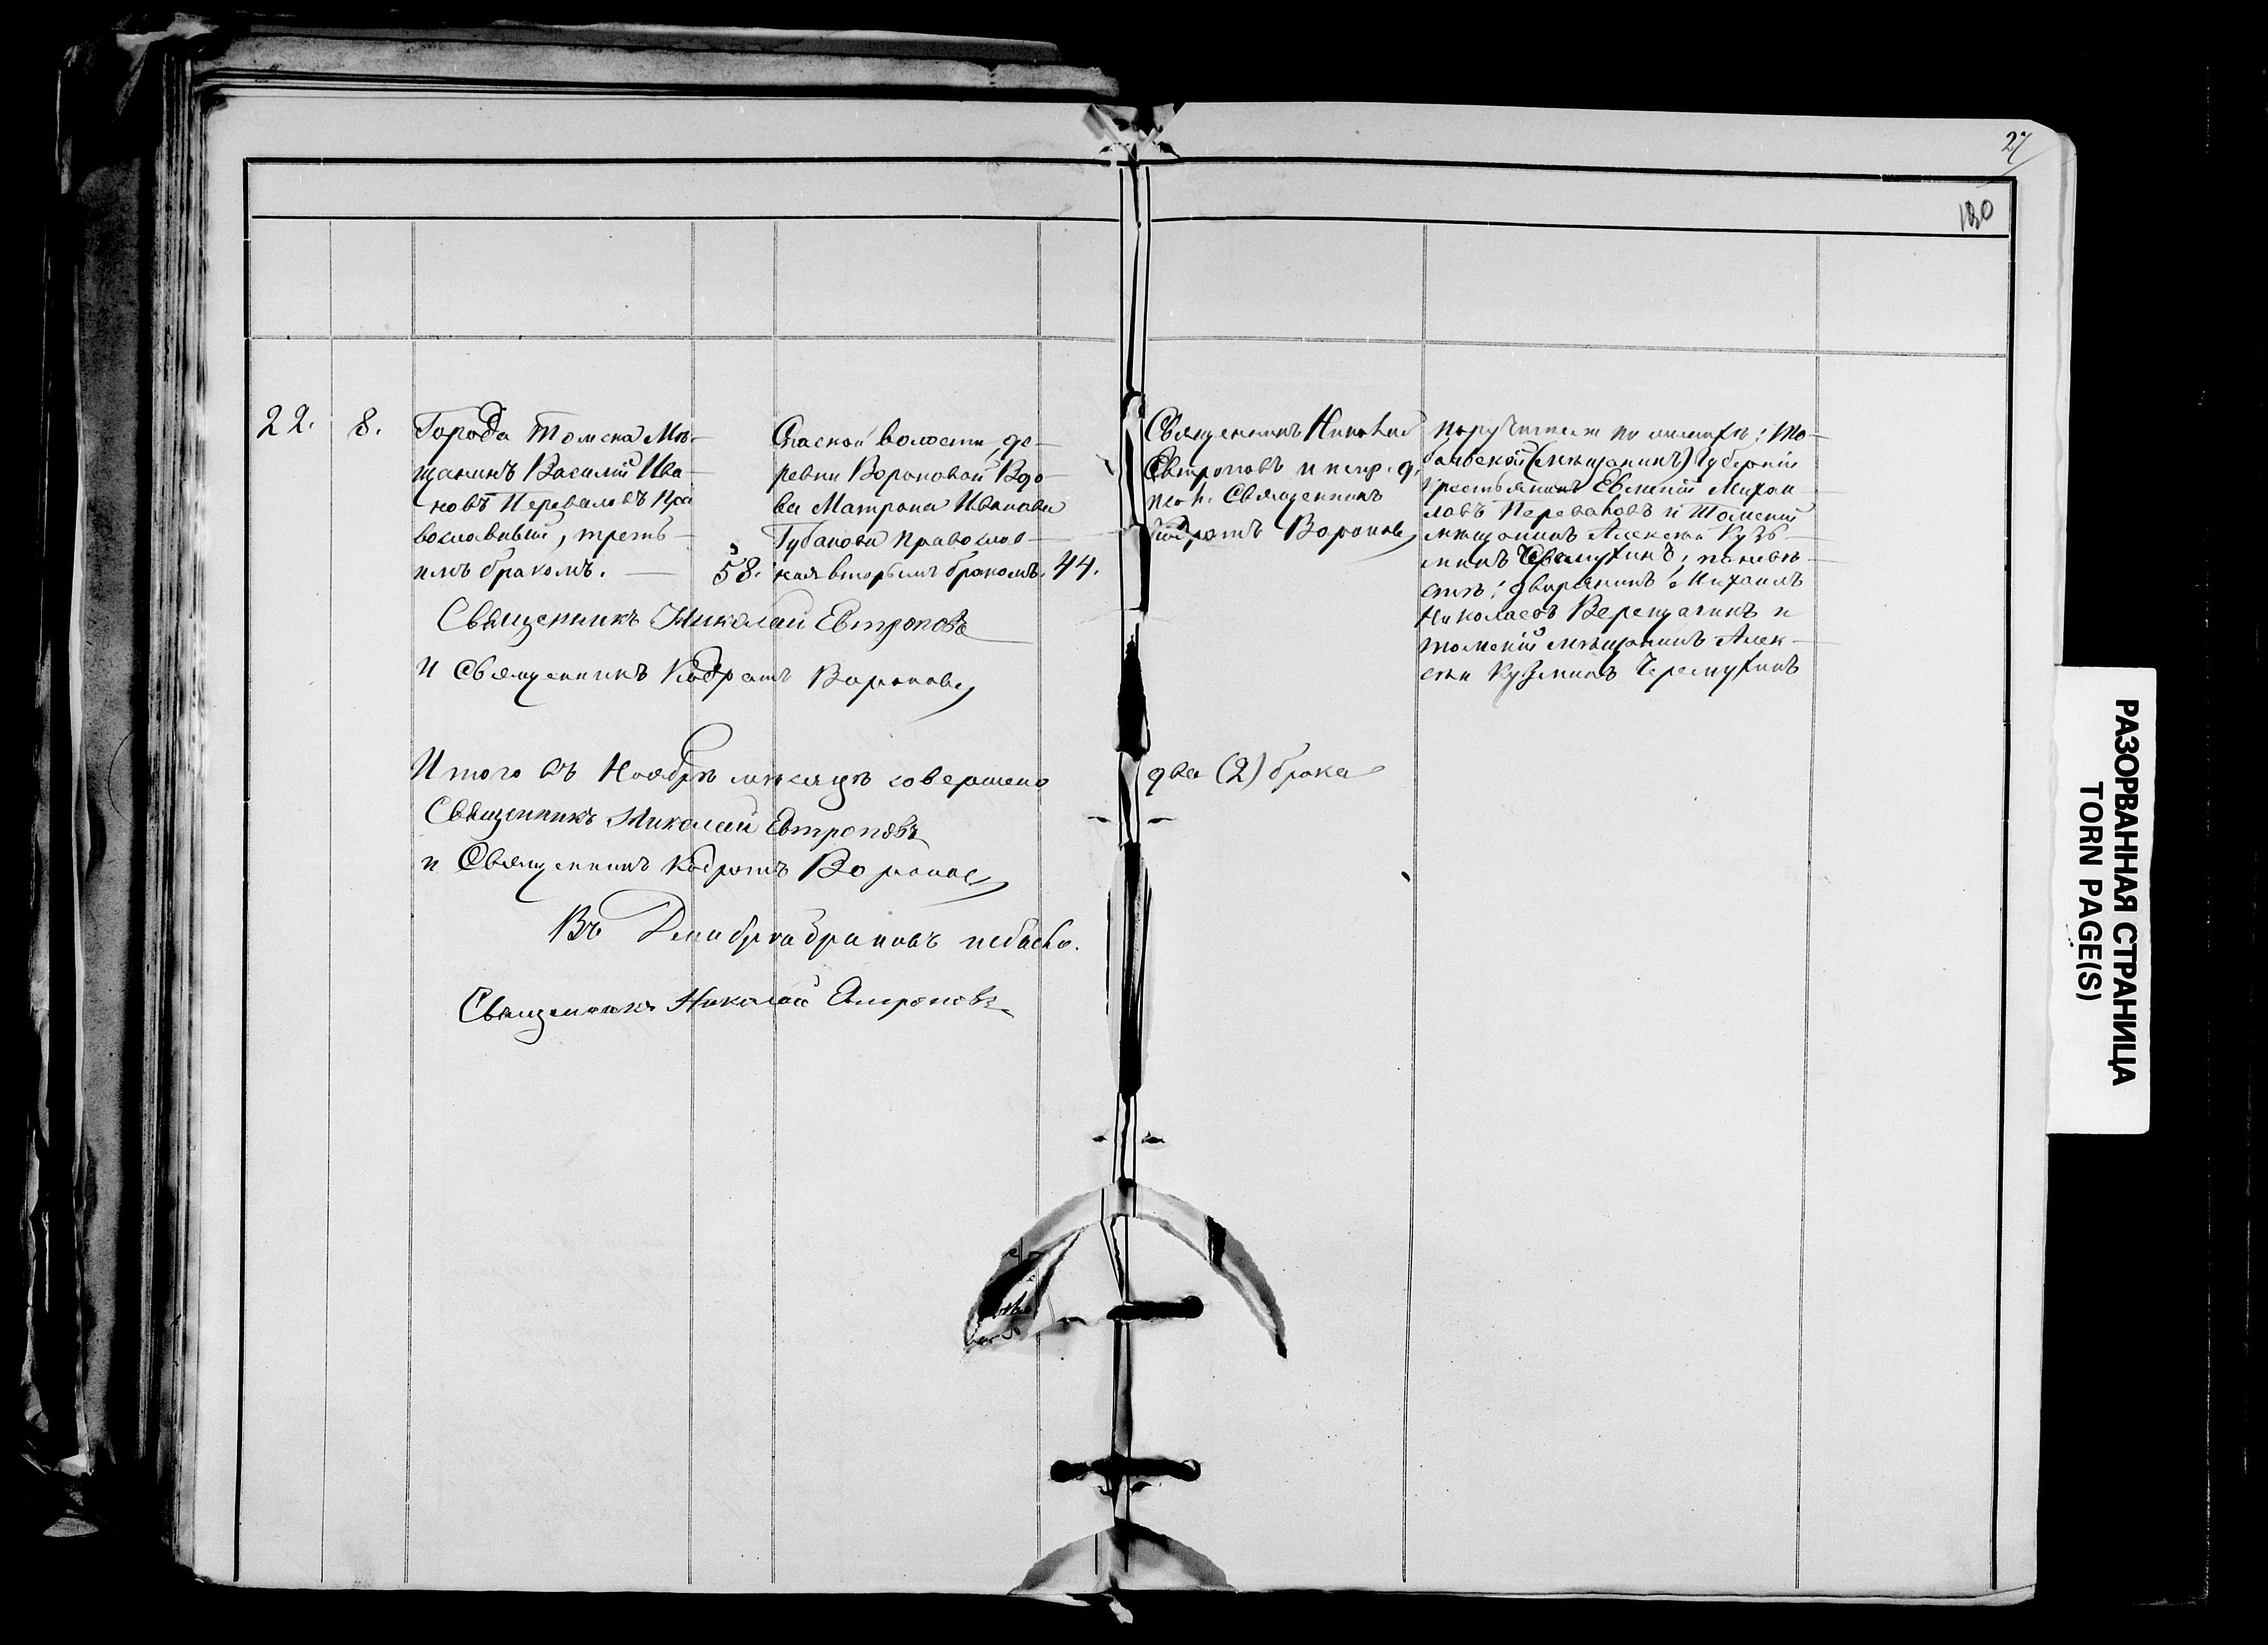 27
180
22.
8.
Города Томска Мѣ-
щанинъ Василій Ива-
новъ Переваловъ Пра
вославный, треть-
имъ бракомъ.
58.
Спаской волости, де-
ревни Вороновой Вдо-
ва Матрона Иванова
Губанова православ-
ная вторымъ бракомъ.
44.
Священникъ Николай
Евтроповъ и испр. д.
псал. Священникъ
Кодратъ Вороновъ
Поручители по женихѣ: То-
больской (мѣщанинъ) Губерніи
крестьянинъ Евмений Михаи
ловъ Переваловъ и Томский
мѣщанинъ Алексѣй Кузь-
минъ Черемухинъ; по невѣ-
стѣ: дворянинъ Михаилъ
Николаевъ Верещагинъ и
томскій мѣщанинъ Алек-
сѣй Кузминъ Черемухинъ
Священникъ Николай Евтроповъ
и Священникъ Кодратъ Вороновъ
Итого въ Ноябрѣ месяцѣ совершено два (2) брака
Священникъ Николай Евтроповъ
и Священникъ Кодратъ Вороновъ
Въ Декабрѣ браковъ небыло.
Священникъ Николай Евтроповъ
РАЗОРВАННАЯ СТРАНИЦА
TORN PAGE(S)